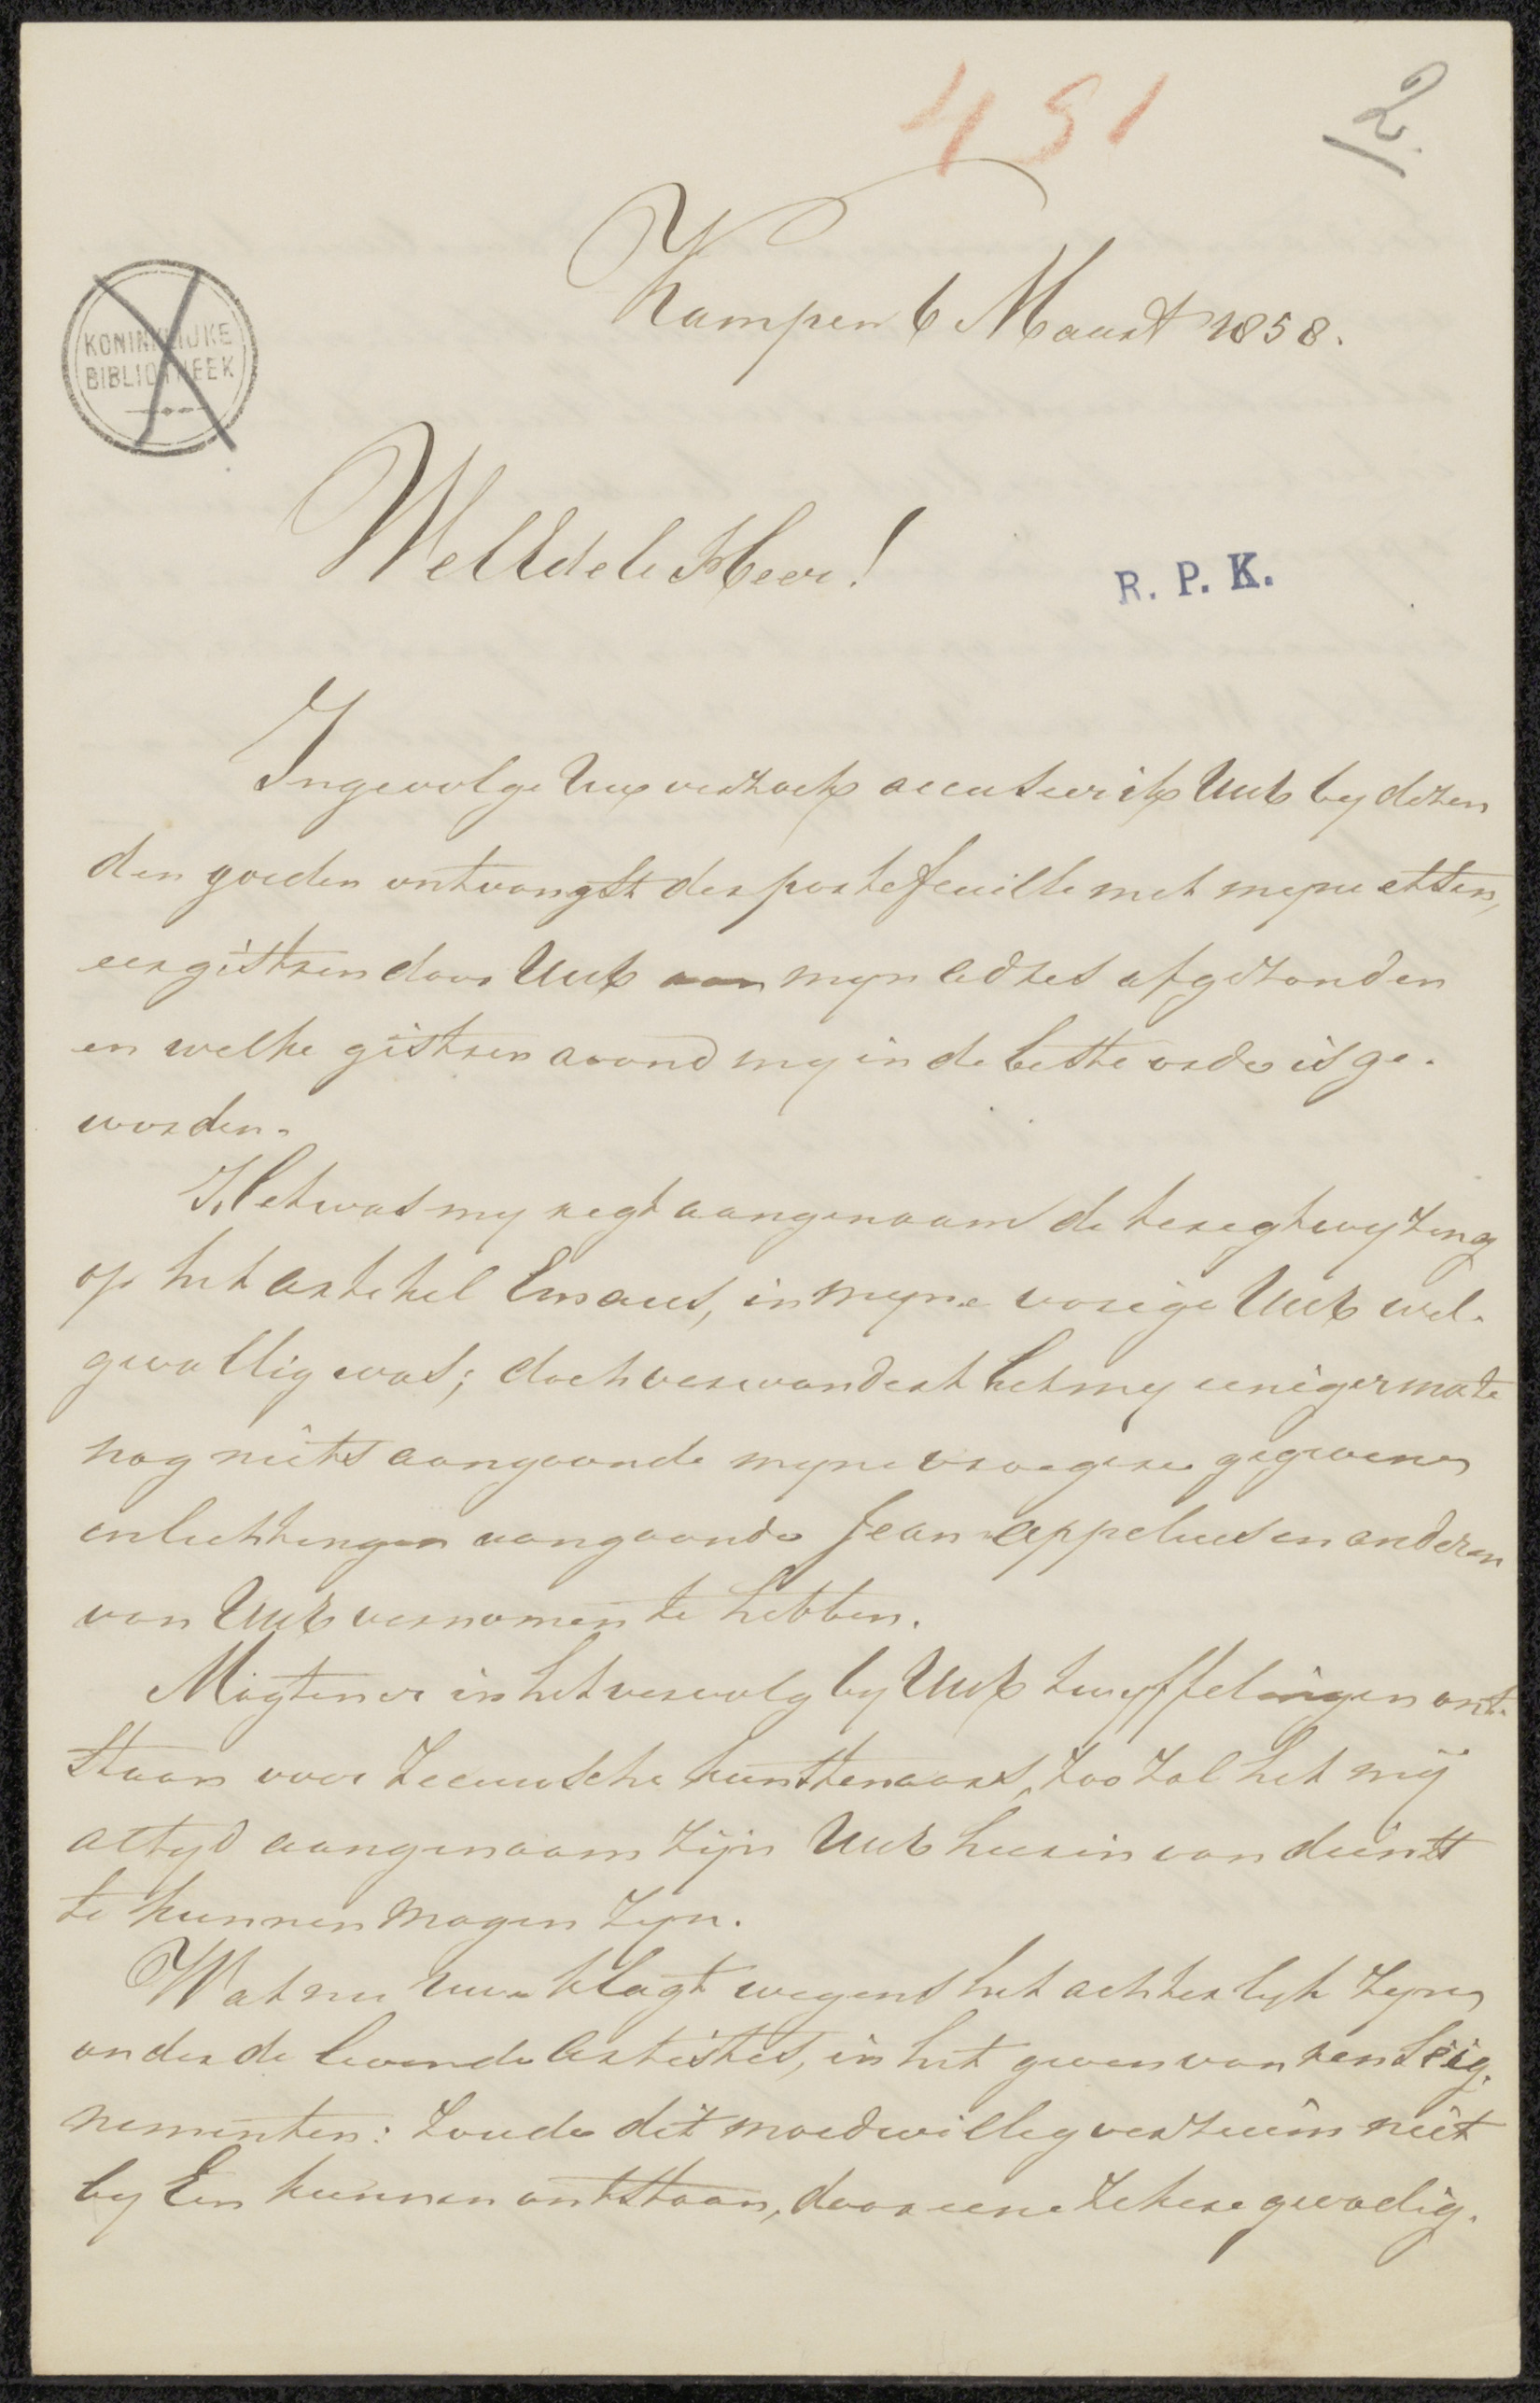 451
2.
Kampen 6 Maart 1858.
KONINKLIJKE
BIBLIOTHEEK
WelEdele Heer!
R. P. K.
Ingevolge Uw verzoek accuseer ik UwE by dezen
den goeden ontvangst der portefeuille met myne etsen,
eergistren door UwE aan myn adres afgezonden
en welke gistren avond my in de beste orde is ge-
worden.
Het was my regt aangenaam de teregtwyzing
op het artekel Emaus, in myne vorige UwE wel-
gevallig was; doch verwondert het my eenigermate
nog niets aangaande myne vroegere gegevene
inlichtingen aangaande Jean Appelius en anderen
van UwE vernomen te hebben.
Mogten er in het vervolg by UwE twyffelingen ont-
staan over Zeeuwsche kunstenaars, zoo zal het mij
altyd aangenaam zijn UwE hierin van dienst
te kunnen mogen zyn.
Wat nu uwe klagt wegens het achterlyk zyn
onder de levende artistes, in het geven van renseig-
nementen: zoude dit moedwillig verzuim niet
by Een kunnen ontstaan, door eene zekere gevadig-